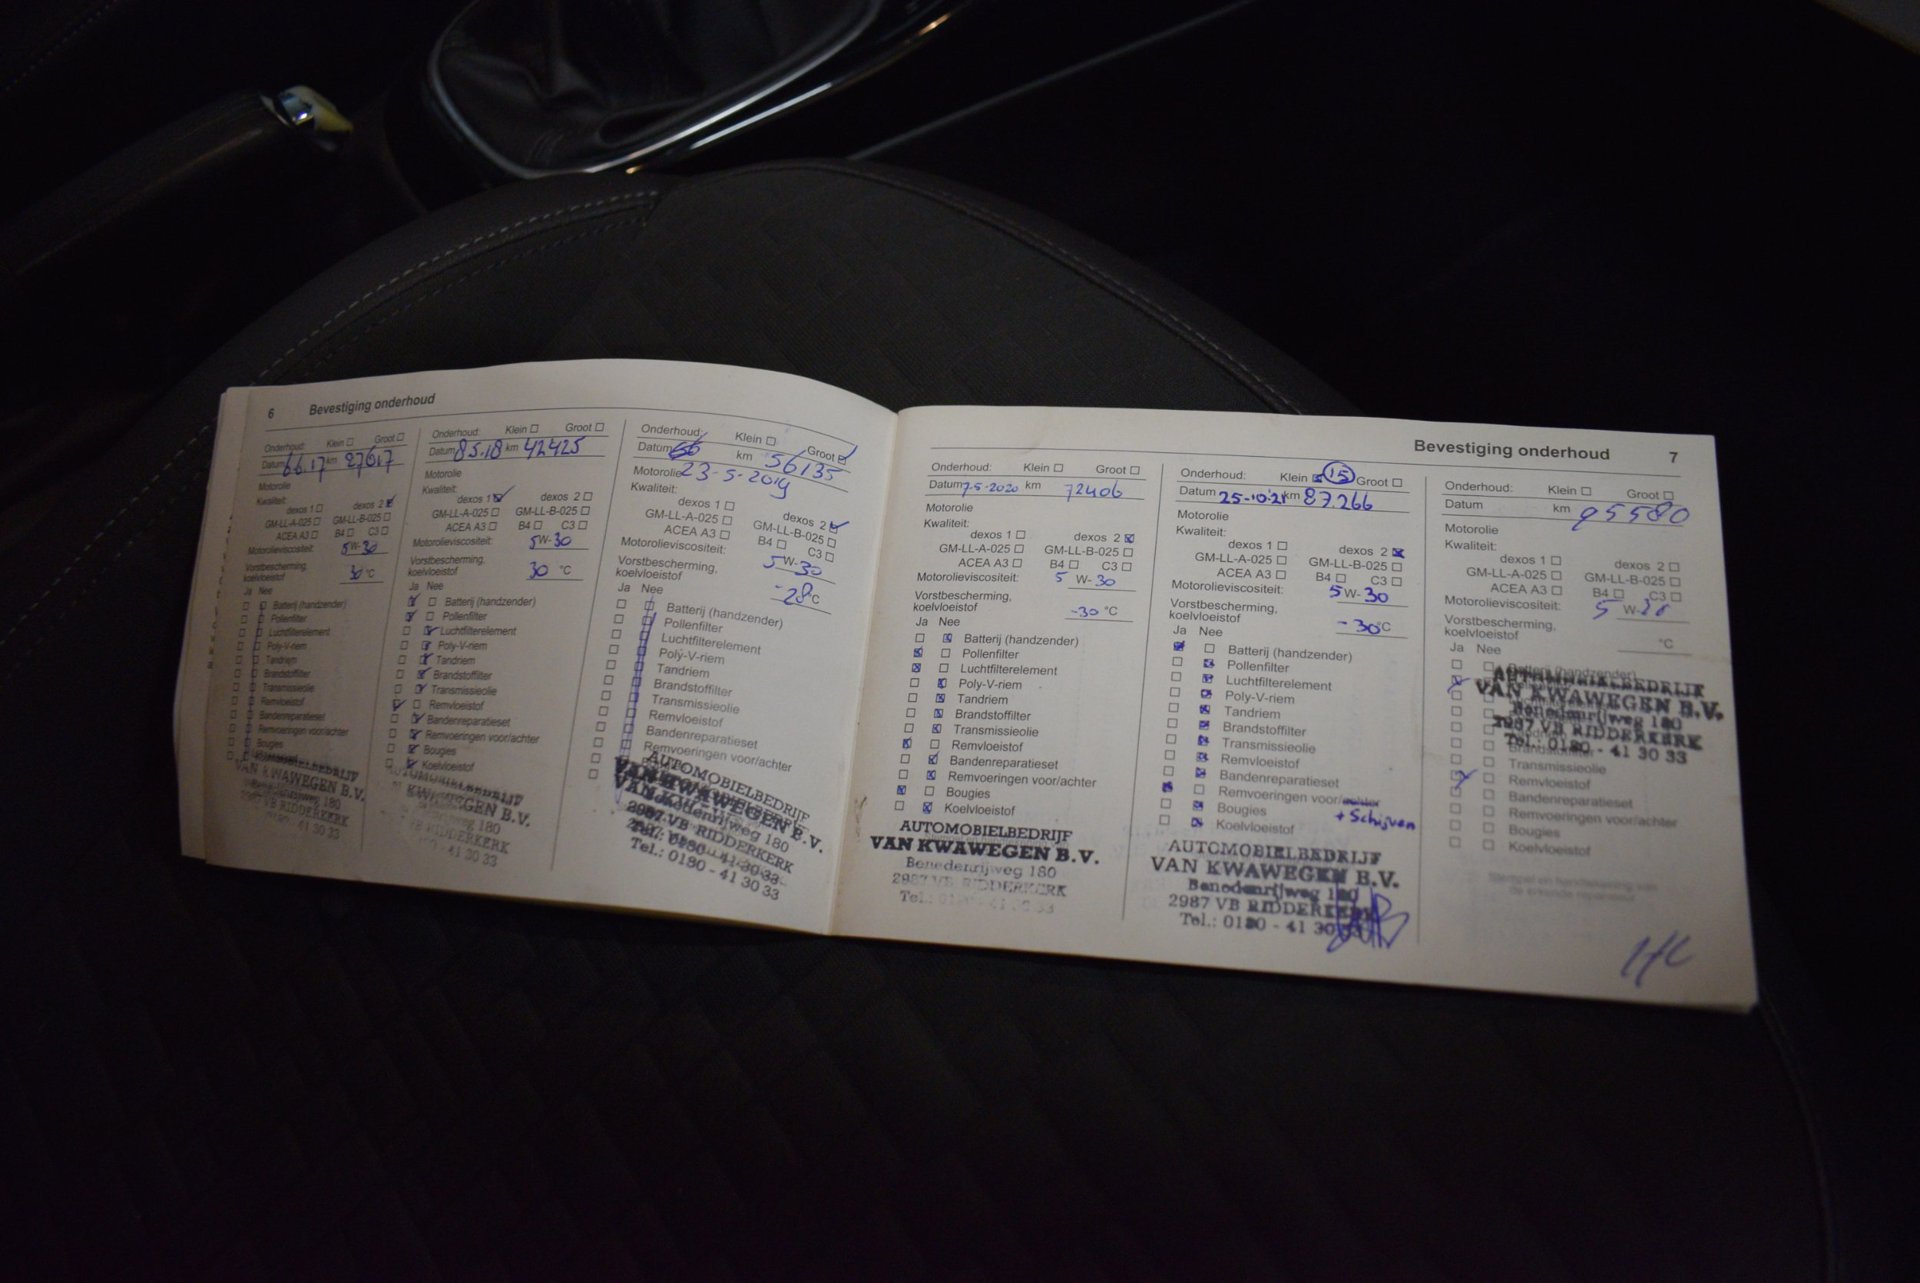 6 Bevestiging onderhoud
Onderhoud: Klein Groot
Datum 6.6.17 km 27617
Motorolie
Kwaliteit:
dexos 1 dexos 2
GM-LL-A-025 GM-LL-B-025
ACEA A3 B4 C3
Motorolieviscositeit: 5W-30
Vorstbescherming,
koelvloeistof 30 °C
Ja Nee
Batterij (handzender)
Pollenfilter
Luchtfilterelement
Poly-V-riem
Tandriem
Brandstoffilter
Transmissieolie
Remvloeistof
Bandenreparatieset
Remvoeringen voor/achter
Bougies
AUTOMOBIELBEDRIJF
VAN KWAWEGEN B.V.
Benedenrijweg 180
2987 VB RIDDERKERK
41 30 33
Onderhoud: Klein Groot
Datum 8.5.18 km 42425
Motorolie
Kwaliteit:
dexos 1 dexos 2
GM-LL-A-025 GM-LL-B-025
ACEA A3 B4 C3
Motorolieviscositeit: 5W-30
Vorstbescherming,
koelvloeistof 30 °C
Ja Nee
Batterij (handzender)
Pollenfilter
Luchtfilterelement
Poly-V-riem
Tandriem
Brandstoffilter
Transmissieolie
Remvloeistof
Bandenreparatieset
Remvoeringen voor/achter
Bougies
Koelvloeistof
AUTOMOBIELBEDRIJF
VAN KWAWEGEN B.V.
Benedenrijweg 180
RIDDERKERK
- 41 30 33
Onderhoud: Klein Groot
Datum km 56135
Motorolie 23-5-2019
Kwaliteit:
dexos 1 dexos 2
GM-LL-A-025 GM-LL-B-025
ACEA A3 B4 C3
Motorolieviscositeit: 5W-30
Vorstbescherming,
koelvloeistof -28°C
Ja Nee
Batterij (handzender)
Pollenfilter
Luchtfilterelement
Poly-V-riem
Tandriem
Brandstoffilter
Transmissieolie
Remvloeistof
Bandenreparatieset
Remvoeringen voor/achter
AUTOMOBIELBEDRIJF
VAN KWAWEGEN B.V.
Benedenrijweg 180
2987 VB RIDDERKERK
Tel.: 0180 - 41 30 33
Bevestiging onderhoud 7
Onderhoud: Klein Groot
Datum 7-5-2020 km 72406
Motorolie
Kwaliteit:
dexos 1 dexos 2
GM-LL-A-025 GM-LL-B-025
ACEA A3 B4 C3
Motorolieviscositeit: 5 W-30
Vorstbescherming,
koelvloeistof -30 °C
Ja Nee
Batterij (handzender)
Pollenfilter
Luchtfilterelement
Poly-V-riem
Tandriem
Brandstoffilter
Transmissieolie
Remvloeistof
Bandenreparatieset
Remvoeringen voor/achter
Bougies
Koelvloeistof
AUTOMOBIELBEDRIJF
VAN KWAWEGEN B.V.
Benedenrijweg 180
2987 VB RIDDERKERK
Tel.: 0180 - 41 30 33
Onderhoud: Klein 15 Groot
Datum 25-10-21 km 87.266
Motorolie
Kwaliteit:
dexos 1 dexos 2
GM-LL-A-025 GM-LL-B-025
ACEA A3 B4 C3
Motorolieviscositeit: 5W-30
Vorstbescherming,
koelvloeistof -30°C
Ja Nee
Batterij (handzender)
Pollenfilter
Luchtfilterelement
Poly-V-riem
Tandriem
Brandstoffilter
Transmissieolie
Remvloeistof
Bandenreparatieset
Remvoeringen voor/achter
Bougies + Schijven
Koelvloeistof
AUTOMOBIELBEDRIJF
VAN KWAWEGEN B.V.
Benedenrijweg 180
2987 VB RIDDERKERK
Tel.: 0180 - 41 30 33
Onderhoud: Klein Groot
Datum km 95580
Motorolie
Kwaliteit:
dexos 1 dexos 2
GM-LL-A-025 GM-LL-B-025
ACEA A3 B4 C3
Motorolieviscositeit: 5 W-30
Vorstbescherming,
koelvloeistof °C
Ja Nee
Batterij (handzender)
AUTOMOBIELBEDRIJF
VAN KWAWEGEN B.V.
Benedenrijweg 180
2987 VB RIDDERKERK
Tel.: 0180 - 41 30 33
Brandstoffilter
Transmissieolie
Remvloeistof
Bandenreparatieset
Remvoeringen voor/achter
Bougies
Koelvloeistof
Stempel en handtekening van
de erkende reparateur